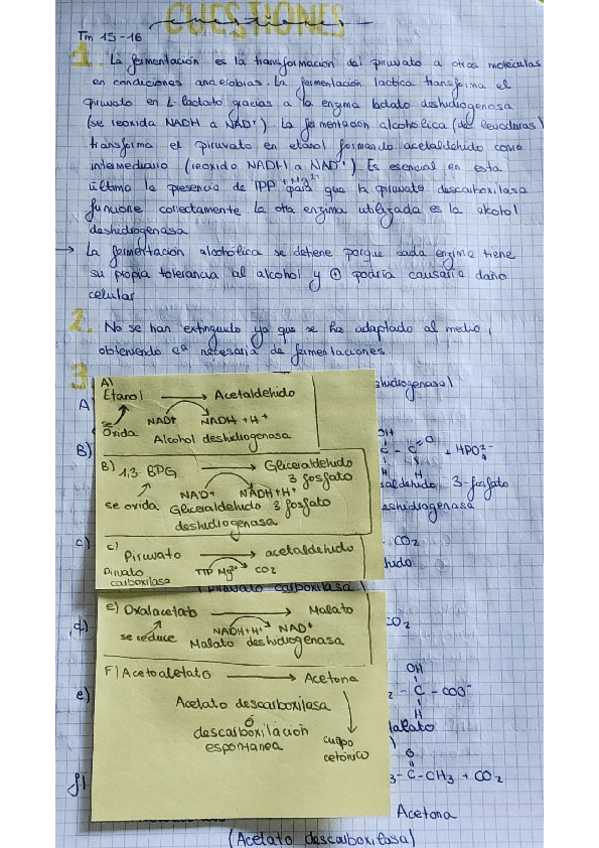 CUESTIONES
Tm 15-16
1. La fermentación es la transformación del piruvato a otras moléculas
en condiciones anaerobias. La fermentación láctica transforma el
piruvato en L-lactato gracias a la enzima lactato deshidrogenasa
(se reoxida NADH a NAD+). La fermentación alcohólica (de levaduras)
transforma el piruvato en etanol formando acetaldehído como
intermediario (reoxida NADH a NAD+) Es esencial en esta
última la presencia de TPP + Mg2+ para que la piruvato descarboxilasa
funcione correctamente La otra enzima utilizada es la alcohol
deshidrogenasa
→ La fermentación alcohólica se detiene porque cada enzima tiene
su propia tolerancia al alcohol y ⊕ podría causarla daño
celular
2. No se han extinguido ya que se ha adaptado al medio,
obteniendo ea necesaria de fermentaciones
3
A) Etanol → Acetaldehido
se oxida
NAD+ NADH + H+
Alcohol deshidrogenasa
B) 1,3 BPG → Gliceraldehido
3 fosfato
se oxida
NAD+ NADH+H+
Gliceraldehido 3 fosfato
deshidrogenasa
c) Piruvato → acetaldehido
Piruvato
carboxilasa
TTP Mg2+ CO2
e) Oxalacetato → Malato
se reduce
NADH+H+ NAD+
Malato deshidrogenasa
F) Acetoacetato → Acetona
Acetato descarboxilasa
ó
descarboxilación
espontánea
cuerpo
cetónico
A
hidrogenasa)
B)
OH
C - C O + HPO4 2-
H
aldehido 3-fosfato
eshidrogenasa
c)
CO2
hido
(Piruvato carboxilasa)
d)
CO2
e)
OH
- C - COO-
H
Malato
f)
O
3-C-CH3 + CO2
Acetona
(Acetato descarboxilasa)